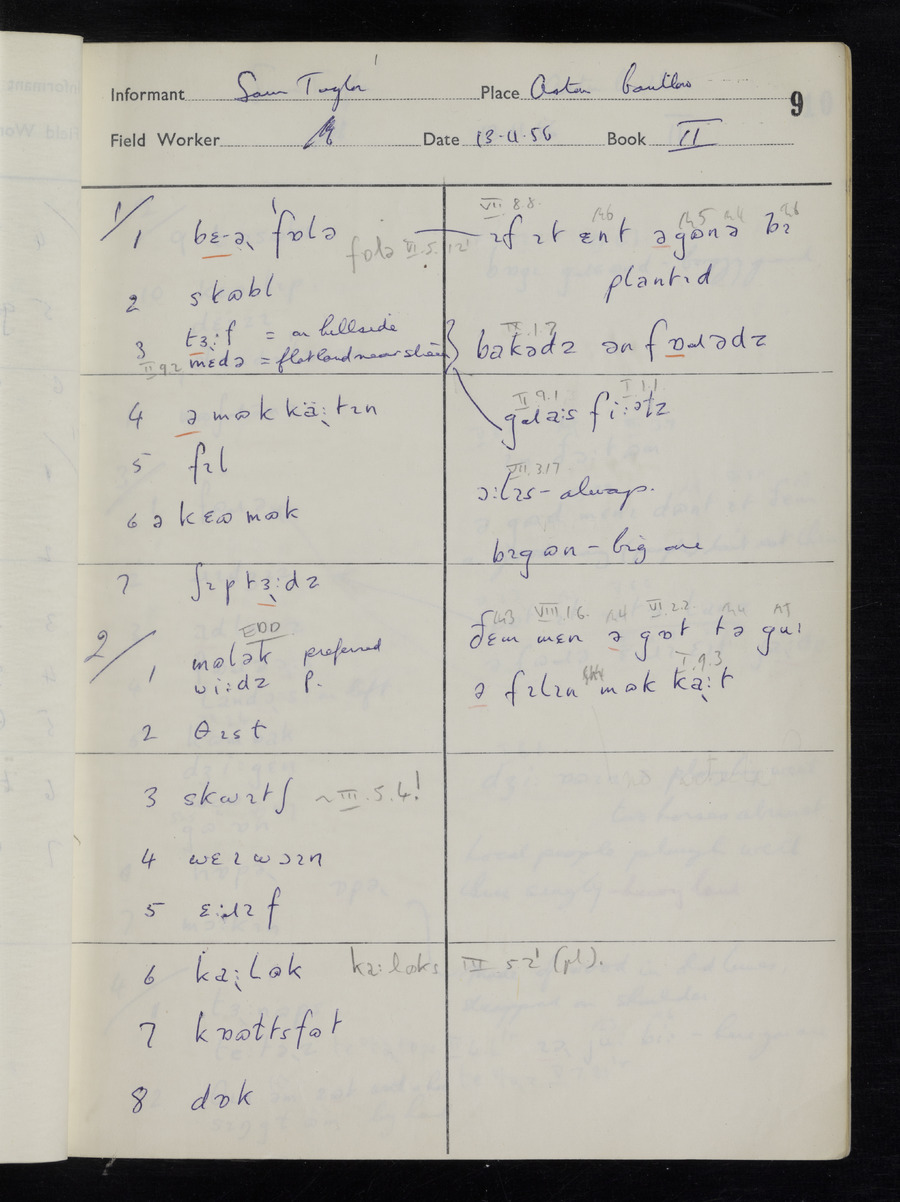 Informant Sam Taylor Place Aston Cantlow 9
Field Worker Date 13-11-56 Book II
1/
1 bɛ·ə fɒlə
fɒlə VI.5.12!
VII 8.8.
ɪf ɪt ɛnt əgɔnə bɪ
plantɪd
2 skɔbl
3 tɜːf = on hillside
II 9.2 mɛdə = flat land near
IX.1.7
bakədz ən fɒɹədz
4 ə mɔk käːtɪn
II 9.1 I 1.1
gɹaːs fiːəɫz
5 fɪl
VII.3.17
ɔːɫɪs - always.
6 ə kɛɔ mɔk
bɪgɔn - big one
7 ʃɪptɜːdz
2/
EDD
1 mɔlək preferred
wiːdz P.
VIII.1.6. VI.2.2
ðɛm mɛn ə gɒt tə guː
I.9.3
ə fɪlɪn mɔk kaːt
2 θɪst
3 skwɪtʃ ~ III.5.4!
4 wɛɪwɔɪn
5 ɛːɹɪf
6 kaːlɔk kaːlɔks III 5 2! (pl).
7 kɒɔltsfɔt
8 dɒk